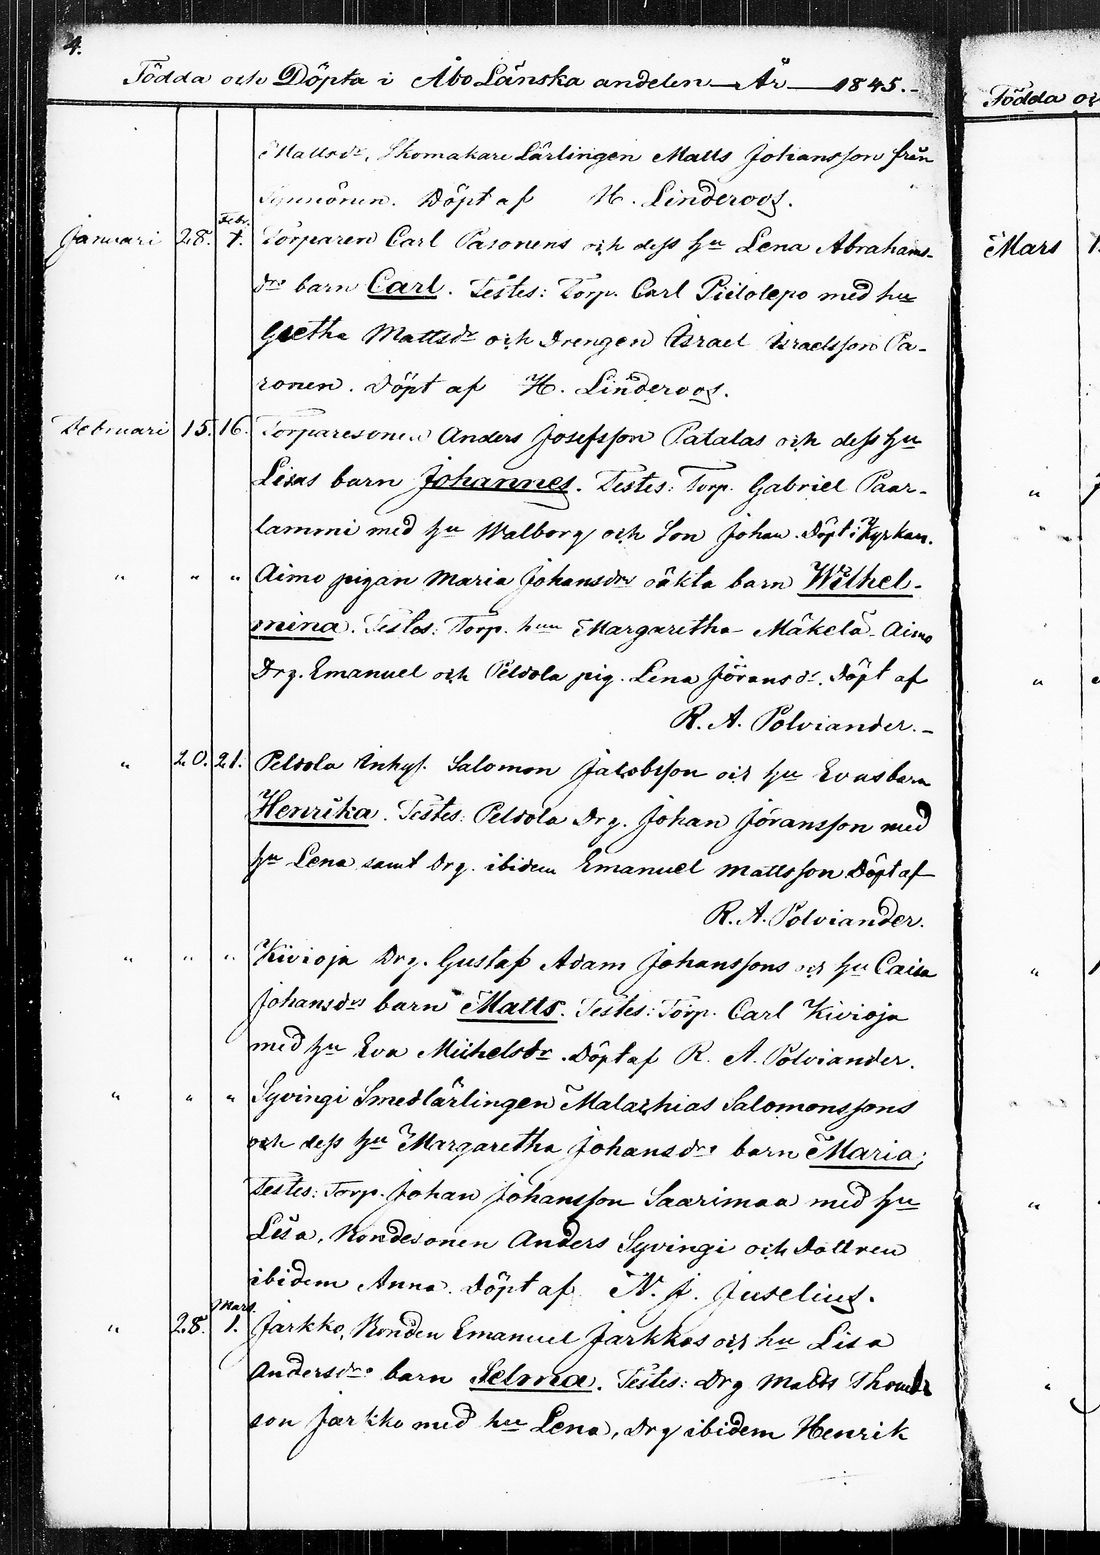 4.
Födda och Döpta i Åbo Länska andelen År 1845.
Mattsdr, Skomakare Lärlingen Matts Johansson från
Döpt af H. Linderoos.
Januari 28. Febr. 1. Torparen Carl Pasonens och dess hu Lena Abrahams-
drs barn Carl. Testes: Torp. Carl Piilolepo med hu
Gretha Mattsdr och Drengen Israel Israelsson Pa-
sonen. Döpt af H. Linderoos.
Februari 15. 16. Torparesonen Anders Josefsson Patalas och dess hu
Lisas barn Johannes. Testes: Torp. Gabriel Paar-
lammi med hu Walborg och Son Johan. Döpt i Kyrkan.
" " " Aimo pigan Maria Johansdrs oäkta barn Wilhel-
mina. Testes: Torp. hun Margaretha Mäkelä Aimo
Drg. Emanuel och Peldola pig. Lena Jöransdr. Döpt af
R. A. Polviander.
" 20. 21. Peldola Inhys. Salomon Jacobsson och hu Evas barn
Henrika. Testes: Peldola Drg. Johan Jöransson med
hu Lena samt Drg. ibidem Emanuel Mattsson Döpt af
R. A. Polviander.
" " " Kivioja Drg. Gustaf Adam Johanssons och hu Caisa
Johansdrs barn Matts. Testes: Torp. Carl Kivioja
med hu Eva Michelsdr. Döpt af R. A. Polviander.
" " " Syvingi Smedlärlingen Malachias Salomonssons
och dess hu Margaretha Johansdrs barn Maria;
Testes: Torp. Johan Johansson Saarimaa med hu
Lisa, Bondesonen Anders Syvingi och Dottren
ibidem Anna. Döpt af N. J. Juselius.
" 28. Mars 1. Jarkko, Bonden Emanuel Jarkkos och hu Lisa
Andersdrs barn Selma. Testes: Drg Matts Thomas
son Jarkko med hu Lena, Drg ibidem Henrik
Födda oc
Mars 1
"
"
"
"
"
"